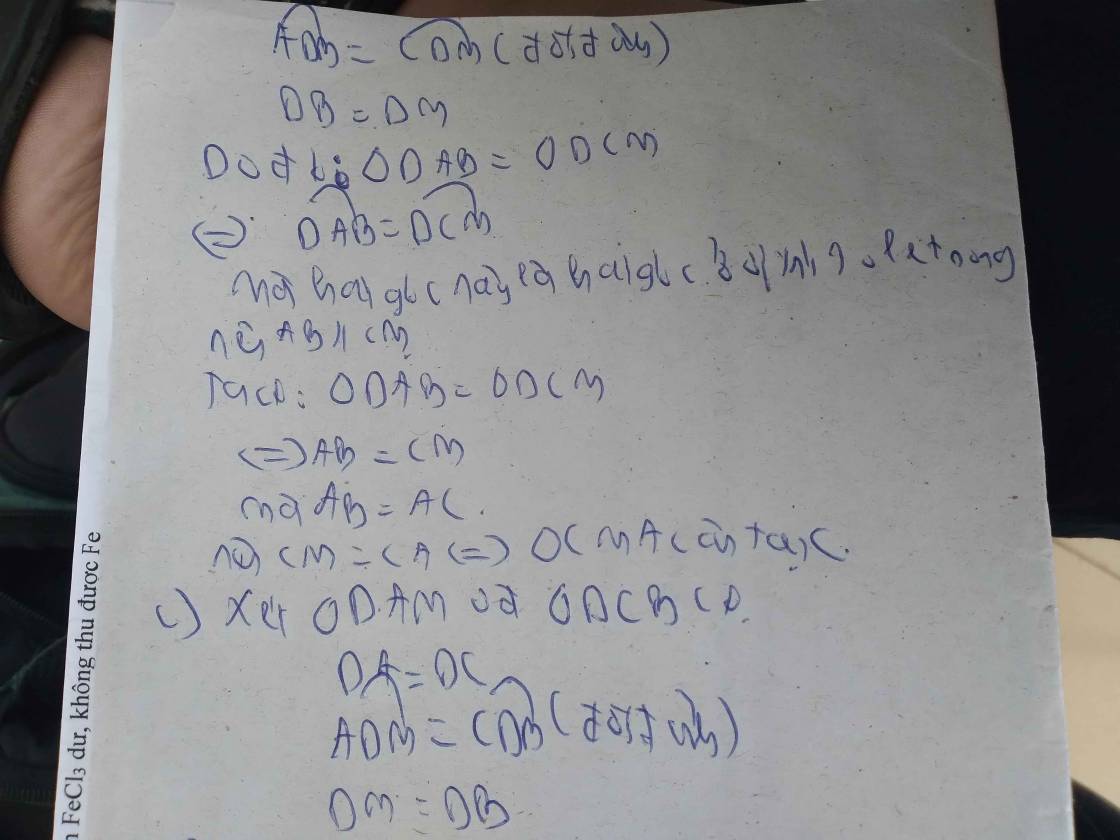 ADB = CDM (đối đỉnh)
DB = DM
Do đó: ΔDAB = ΔDCM
⇔ DAB = DCM
mà hai góc này là hai góc ở vị trí so le trong
nên AB // CM
Ta có: ΔDAB = ΔDCM
⇔ AB = CM
mà AB = AC.
nên CM = CA ⇔ ΔCMA cân tại C.
c) Xét ΔDAM và ΔDCB có
DA = DC
ADM = CDB (đối đỉnh)
DM = DB
FeCl₃ dư, không thu được Fe